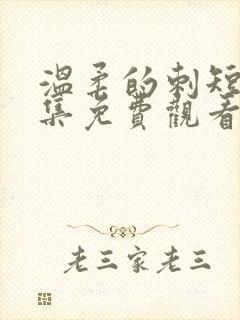 溫柔的刺短
集免費觀看
老三家老三